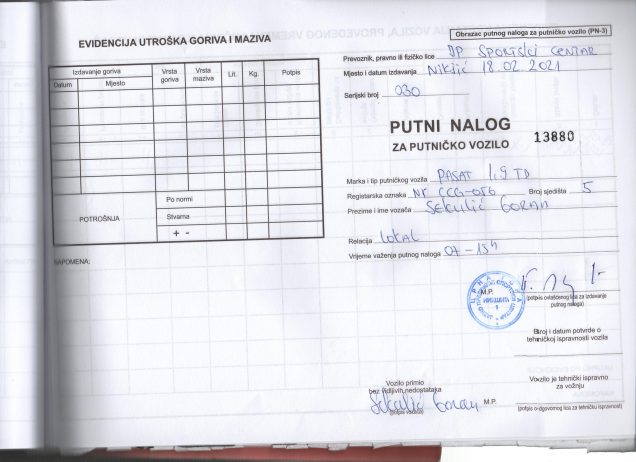 EVIDENCIJA UTROŠKA GORIVA I MAZIVA
Izdavanje goriva
Datum
Mjesto
Vrsta goriva
Vrsta maziva
Lit.
Kg.
Potpis
POTROŠNJA
Po normi
Stvarna
+ -
NAPOMENA:
Obrazac putnog naloga za putničko vozilo (PN-3)
Prevoznik, pravno ili fizičko lice JP SPORTSKI CENTAR
Mjesto i datum izdavanja Nikšić 18.02 2021
Serijski broj 030
PUTNI NALOG
ZA PUTNIČKO VOZILO 13880
Marka i tip putničkog vozila PASAT 1,9 TD
Registarska oznaka NK CCG-056 Broj sjedišta 5
Prezime i ime vozača Sekulić Goran
Relacija LOKAL
Vrijeme važenja putnog naloga 07-15h
M.P.
(potpis ovlašćenog lica za izdavanje
putnog naloga)
Broj i datum potvrde o
tehničkoj ispravnosti vozila
Vozilo primio
bez vidljivih nedostataka
Sekulić Goran
(potpis vozača)
M.P.
Vozilo je tehnički ispravno
za vožnju
(potpis odgovornog lica za tehničku ispravnost)